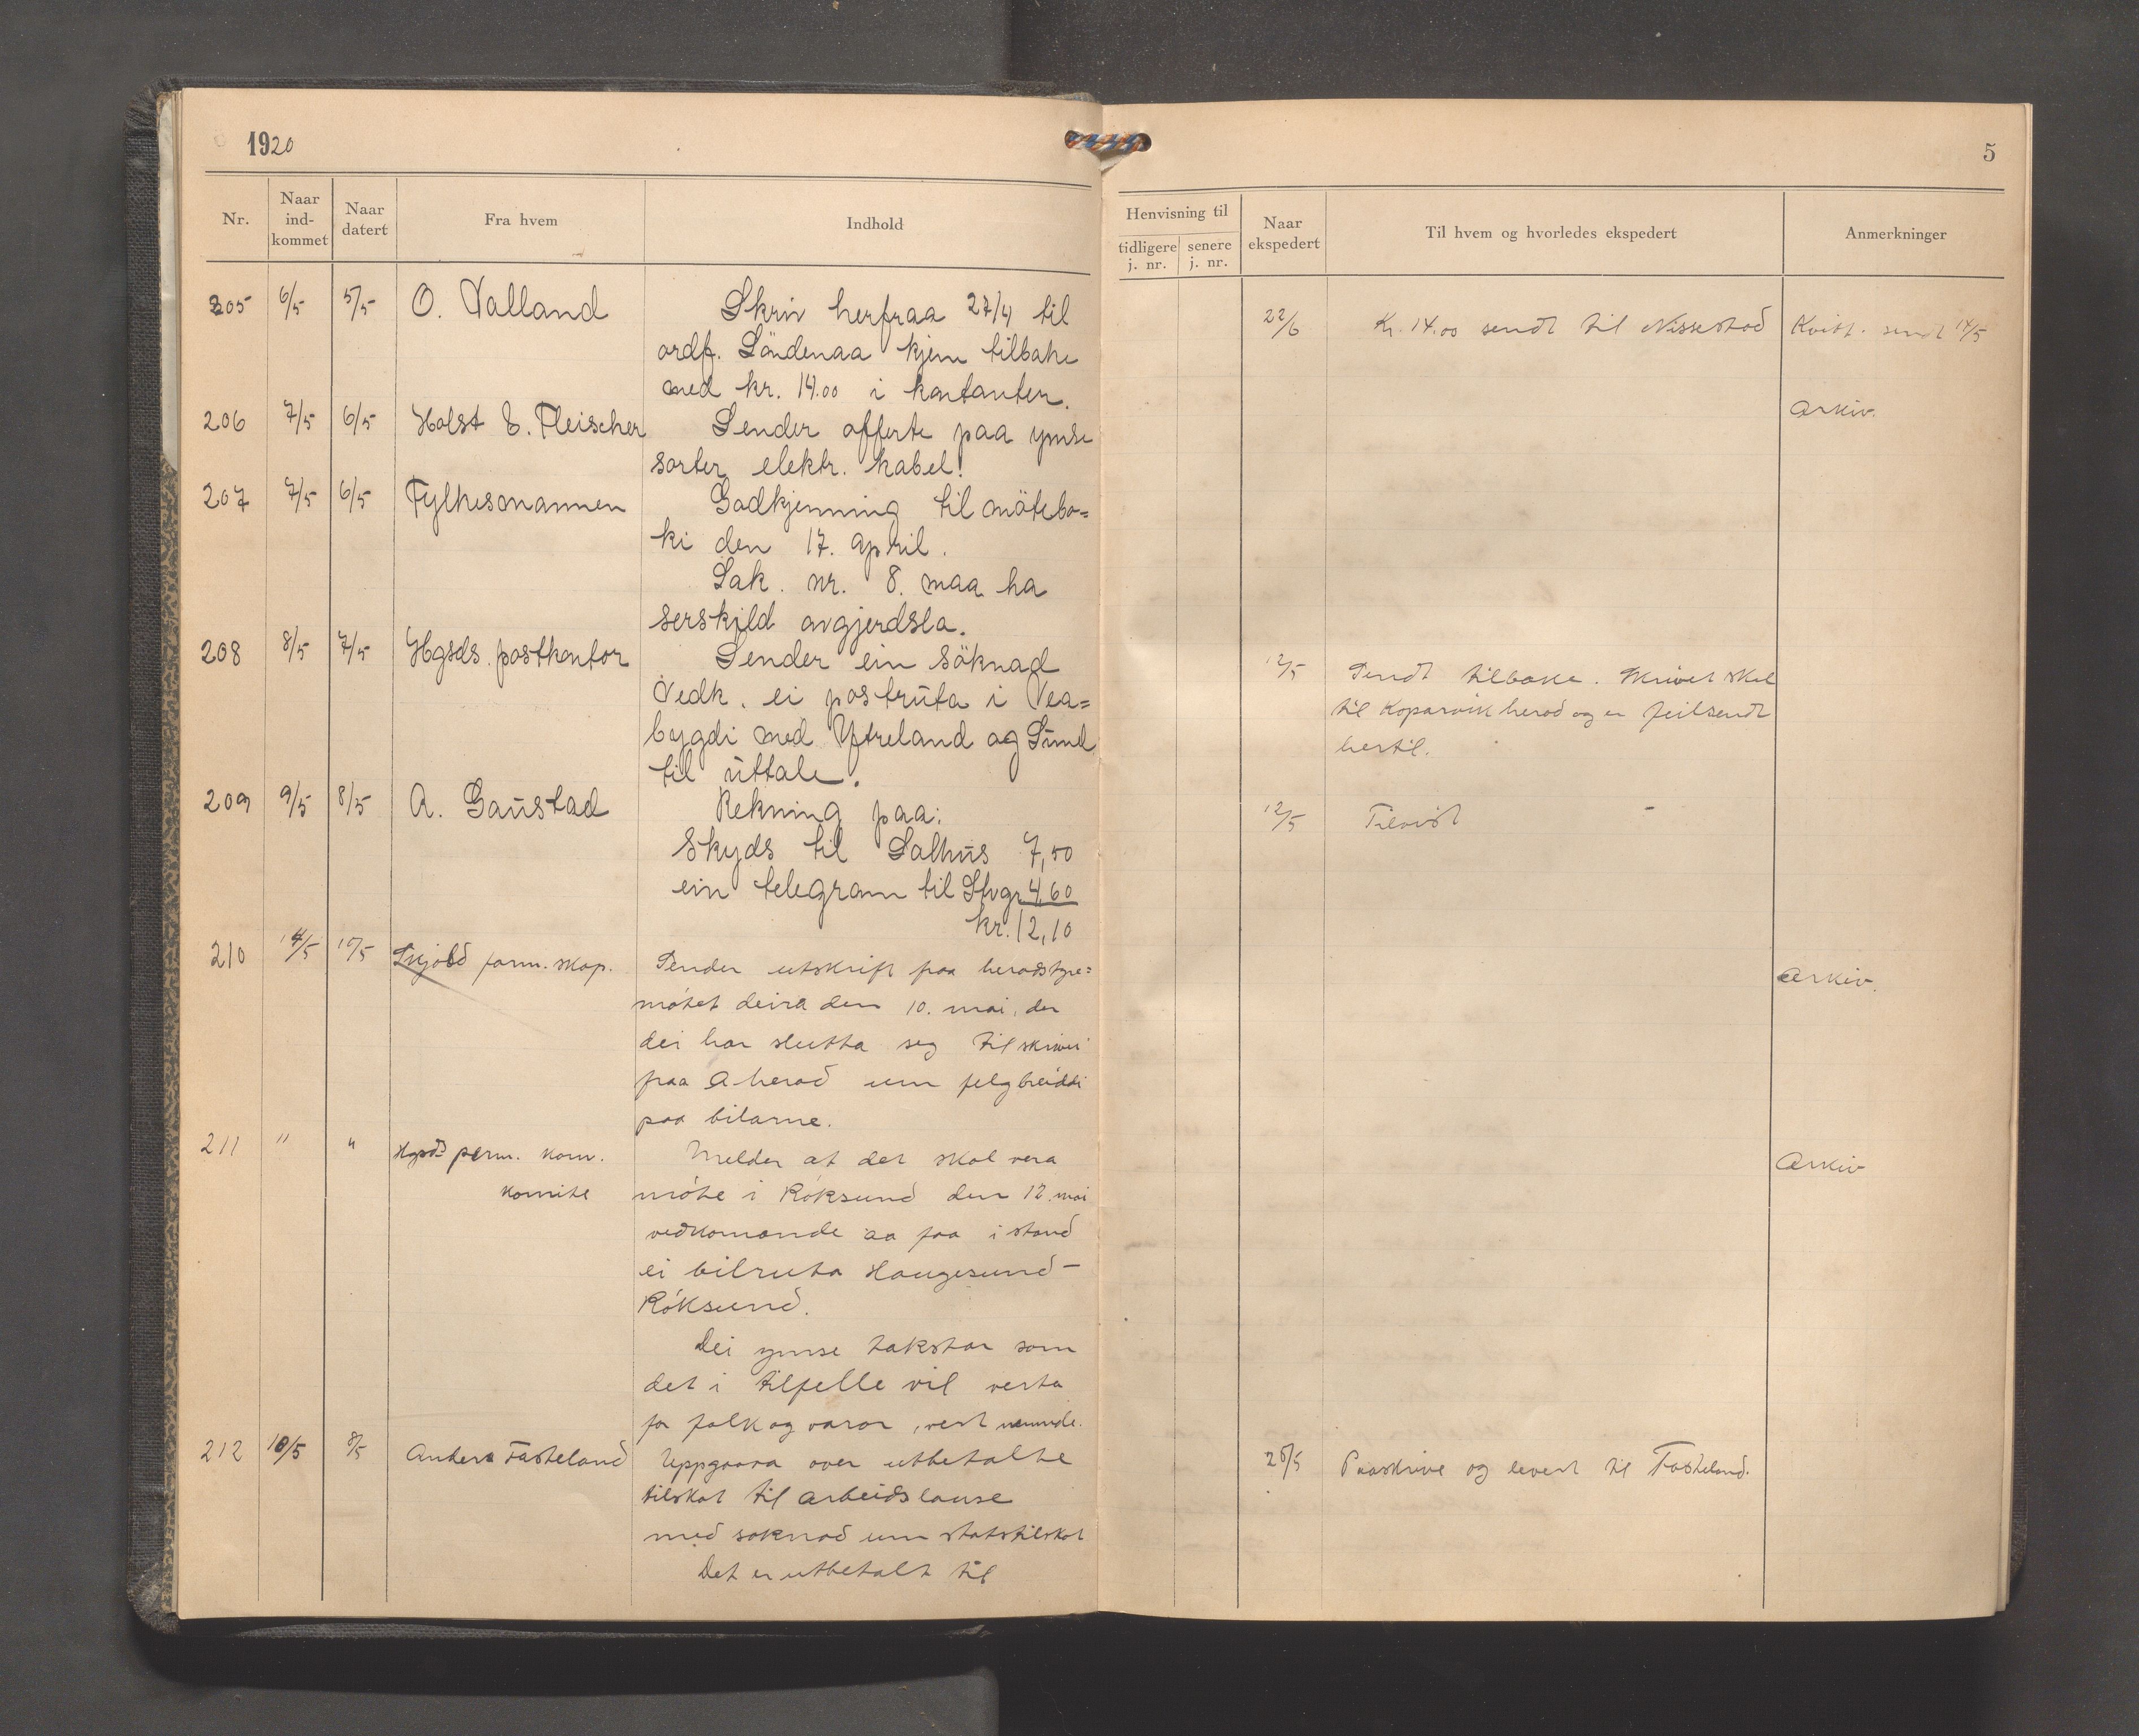 1920
Nr.
Naar ind-kommet
Naar datert
Fra hvem
Indhold
205 6/5 5/5 O. Valland Skriv herfraa 27/4 til
ordf. Søndenaa kjem tilbake
med kr. 14.00 i kontanter.
206 7/5 6/5 Holst & Fleischer Sender offerte paa ymse
sorter elektr. kabel!
207 7/5 6/5 Fylkesmannen Godkjenning til møtebo=
ki den 17. april.
Sak. nr. 8. maa ha
serskild avgjerdsla.
208 8/5 7/5 Hgsds. postkontor Sender ein søknad
Vedk. ei postruta i Vea=
bygdi med Ytreland og Sund
til uttale.
209 9/5 8/5 A. Gaustad Rekning paa:
Skyds til Salhus 7,50
ein telegram til Stvgr 4,60
kr. 12,10
210 14/5 10/5 Skjold form.skap. Sender utskrift fraa heradstyre=
møtet deira den 10. mai, der
dei har slutta seg til skrivet
fraa A. herad um felgbreiddi
paa bilarne.
211 " " Hgsds perm. kom.
komite
Melder at det skal vera
møte i Røksund den 12. mai
vedkomande aa faa i stand
ei bilruta Haugesund-
Røksund.
Dei ymse takstar som
det i tilfelle vil verta
for folk og varor, vert nemnde.
212 10/5 8/5 Anders Fasteland Uppgaava over utbetalte
tilskot til arbeidslause
med søknad um statstilskot
Det er utbetalt til
5
Henvisning til
tidligere j. nr.
senere j. nr.
Naar ekspedert
Til hvem og hvorledes ekspedert
Anmerkninger
22/6 Kr. 14.00 sendt til Nissestad Kvitt. sendt 14/5
Arkiv.
12/5 Sendt tilbake. Skrivet skal
til Kopervik herad og er feilsendt
hertil.
12/5 Tilvist
Arkiv.
Arkiv
25/5 Paaskrive og levert til Fasteland.